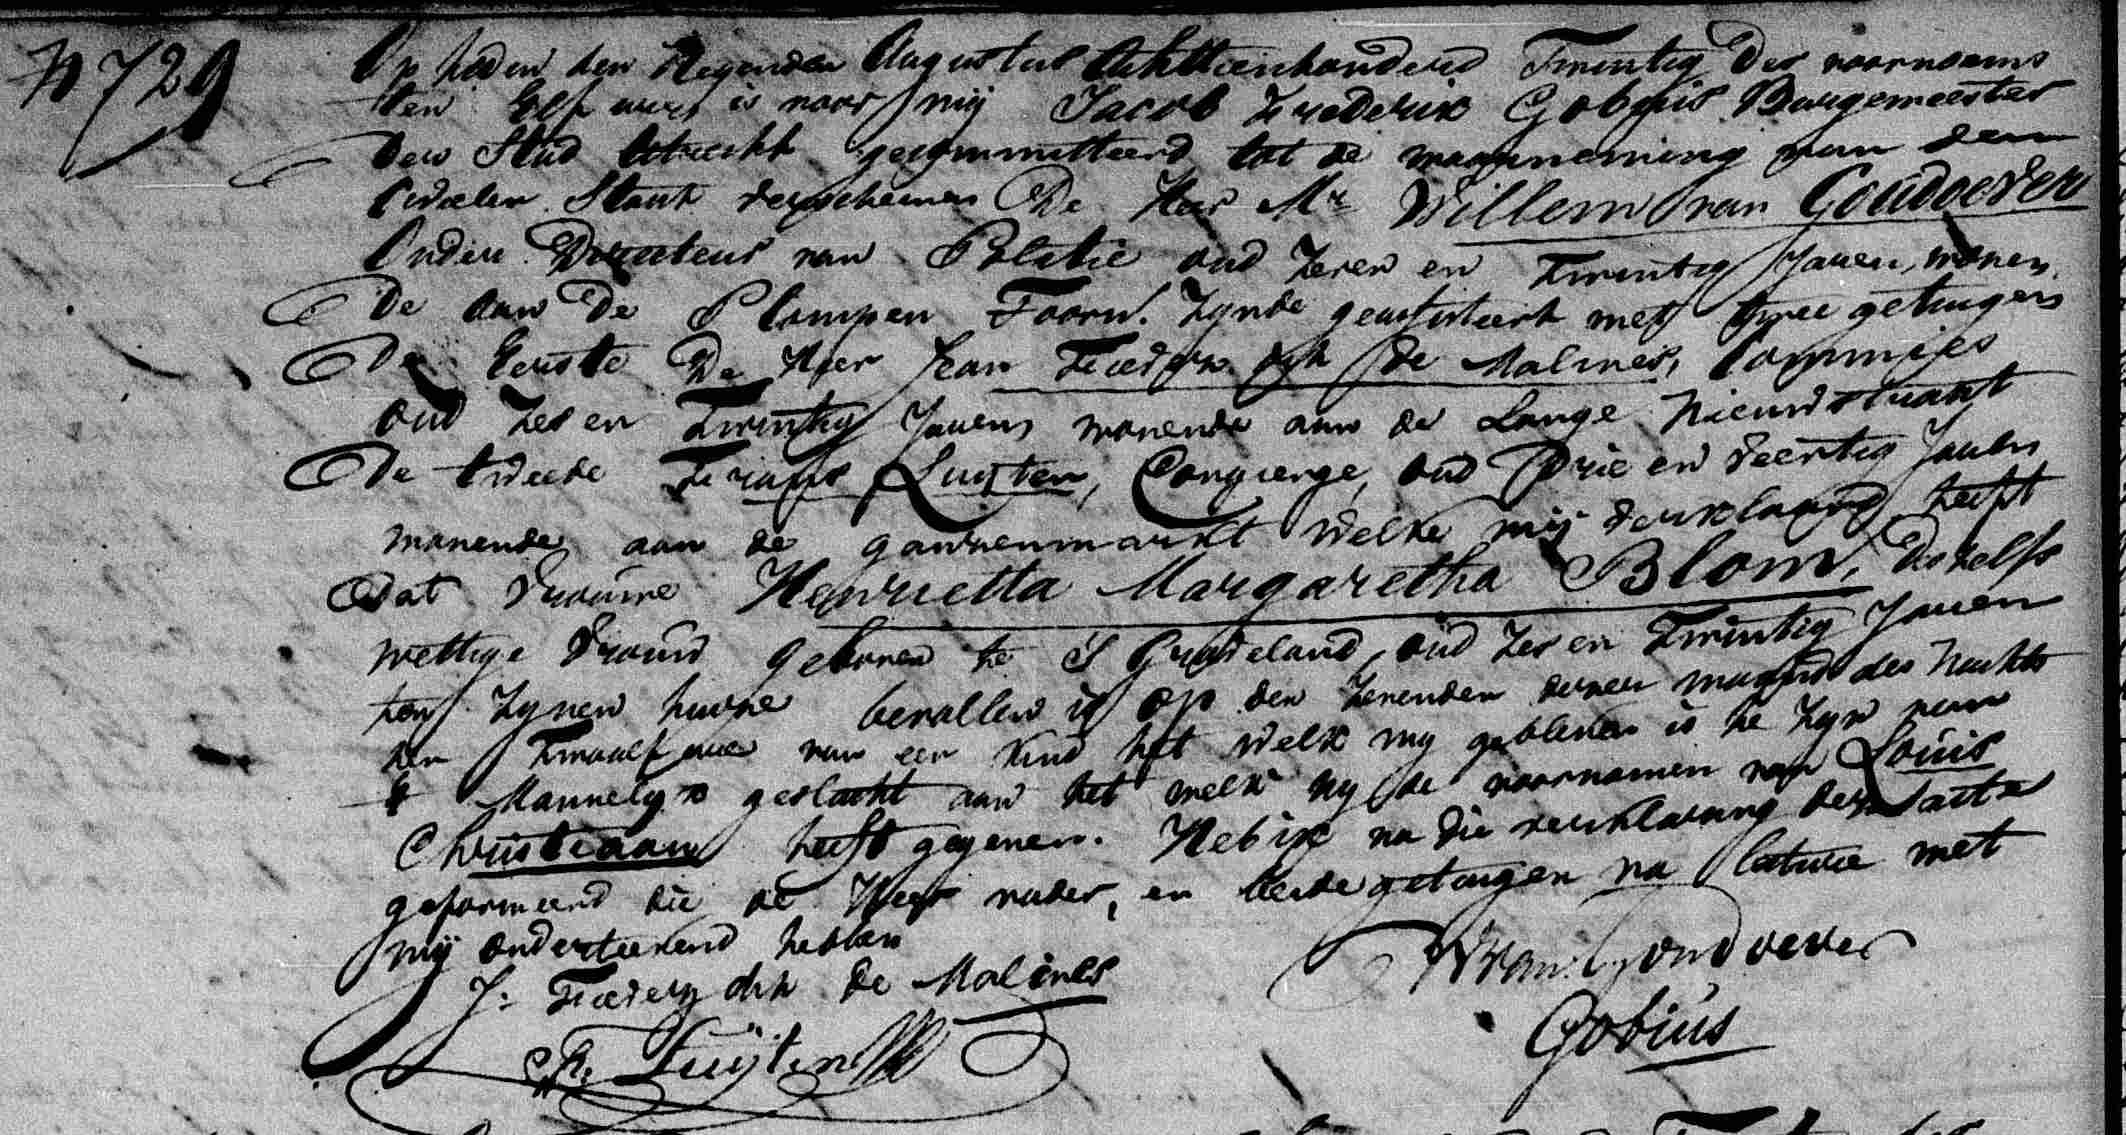 N 729
Op heden den Negenden Augustus Achttienhonderd Twintig des voornoens
ten Elf uure is voor mij Jacob Frederik Gobius Burgemeester
der Stad Utrecht gecommitteerd tot de waarneming van den
Civielen Staat verschenen De Heer Mr Willem van Goudoever
Onder Directeur van Politie oud Zeven en Twintig Jaren, wonen
de aan de Plompen Toorn. Zynde geassisteert met twee getuigen
De Eerste De Heer Jean de Malines, Commies
oud Zes en Twintig Jaren wonende aan de Lange Nieuwstraat
De tweede Frans Luyten, Congierge, oud Drie en Veertig Jaren
wonende aan de ganzenmarkt welke mij verklaard heeft
dat Vrouwe Henrietta Margaretha Blom, deszelfs
wettige Vrouw geboren te S Graveland, oud Zes en Twintig Jaren
ten Zynen huize bevallen is op den Zevenden dezer maand des Nachts
ten Twaalf ure van een Kind het welk my gebleken is te Zyn van
t Mannelyk geslacht aan het welk hy de voornamen van Louis
Christiaan heeft gegeven. Heb ik na die verklaring deze acte
geformeerd die de Heer vader, en beide getuigen na lecture met
mij onderteekend hebben
J: de Malines
W van Goudoever
Gobius
Fr. Luijten